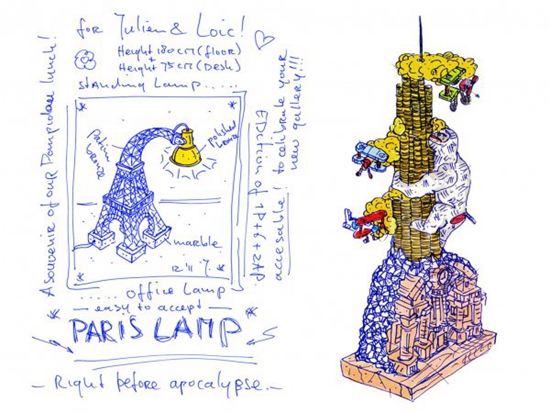 for Julien & Loic!
Height 180 cm (floor)
+
Height 75 cm (Desk)
standing Lamp.....
A souvenir of our Pompidou lunch!
EDition of 1P+4+2AP
accesable! to celibrate your
new gallery!!!
patina
bronze
polished
bronze
marble
12'11
..... office Lamp
— easy to accept —
PARIS LAMP
— Right before apocalypse. —